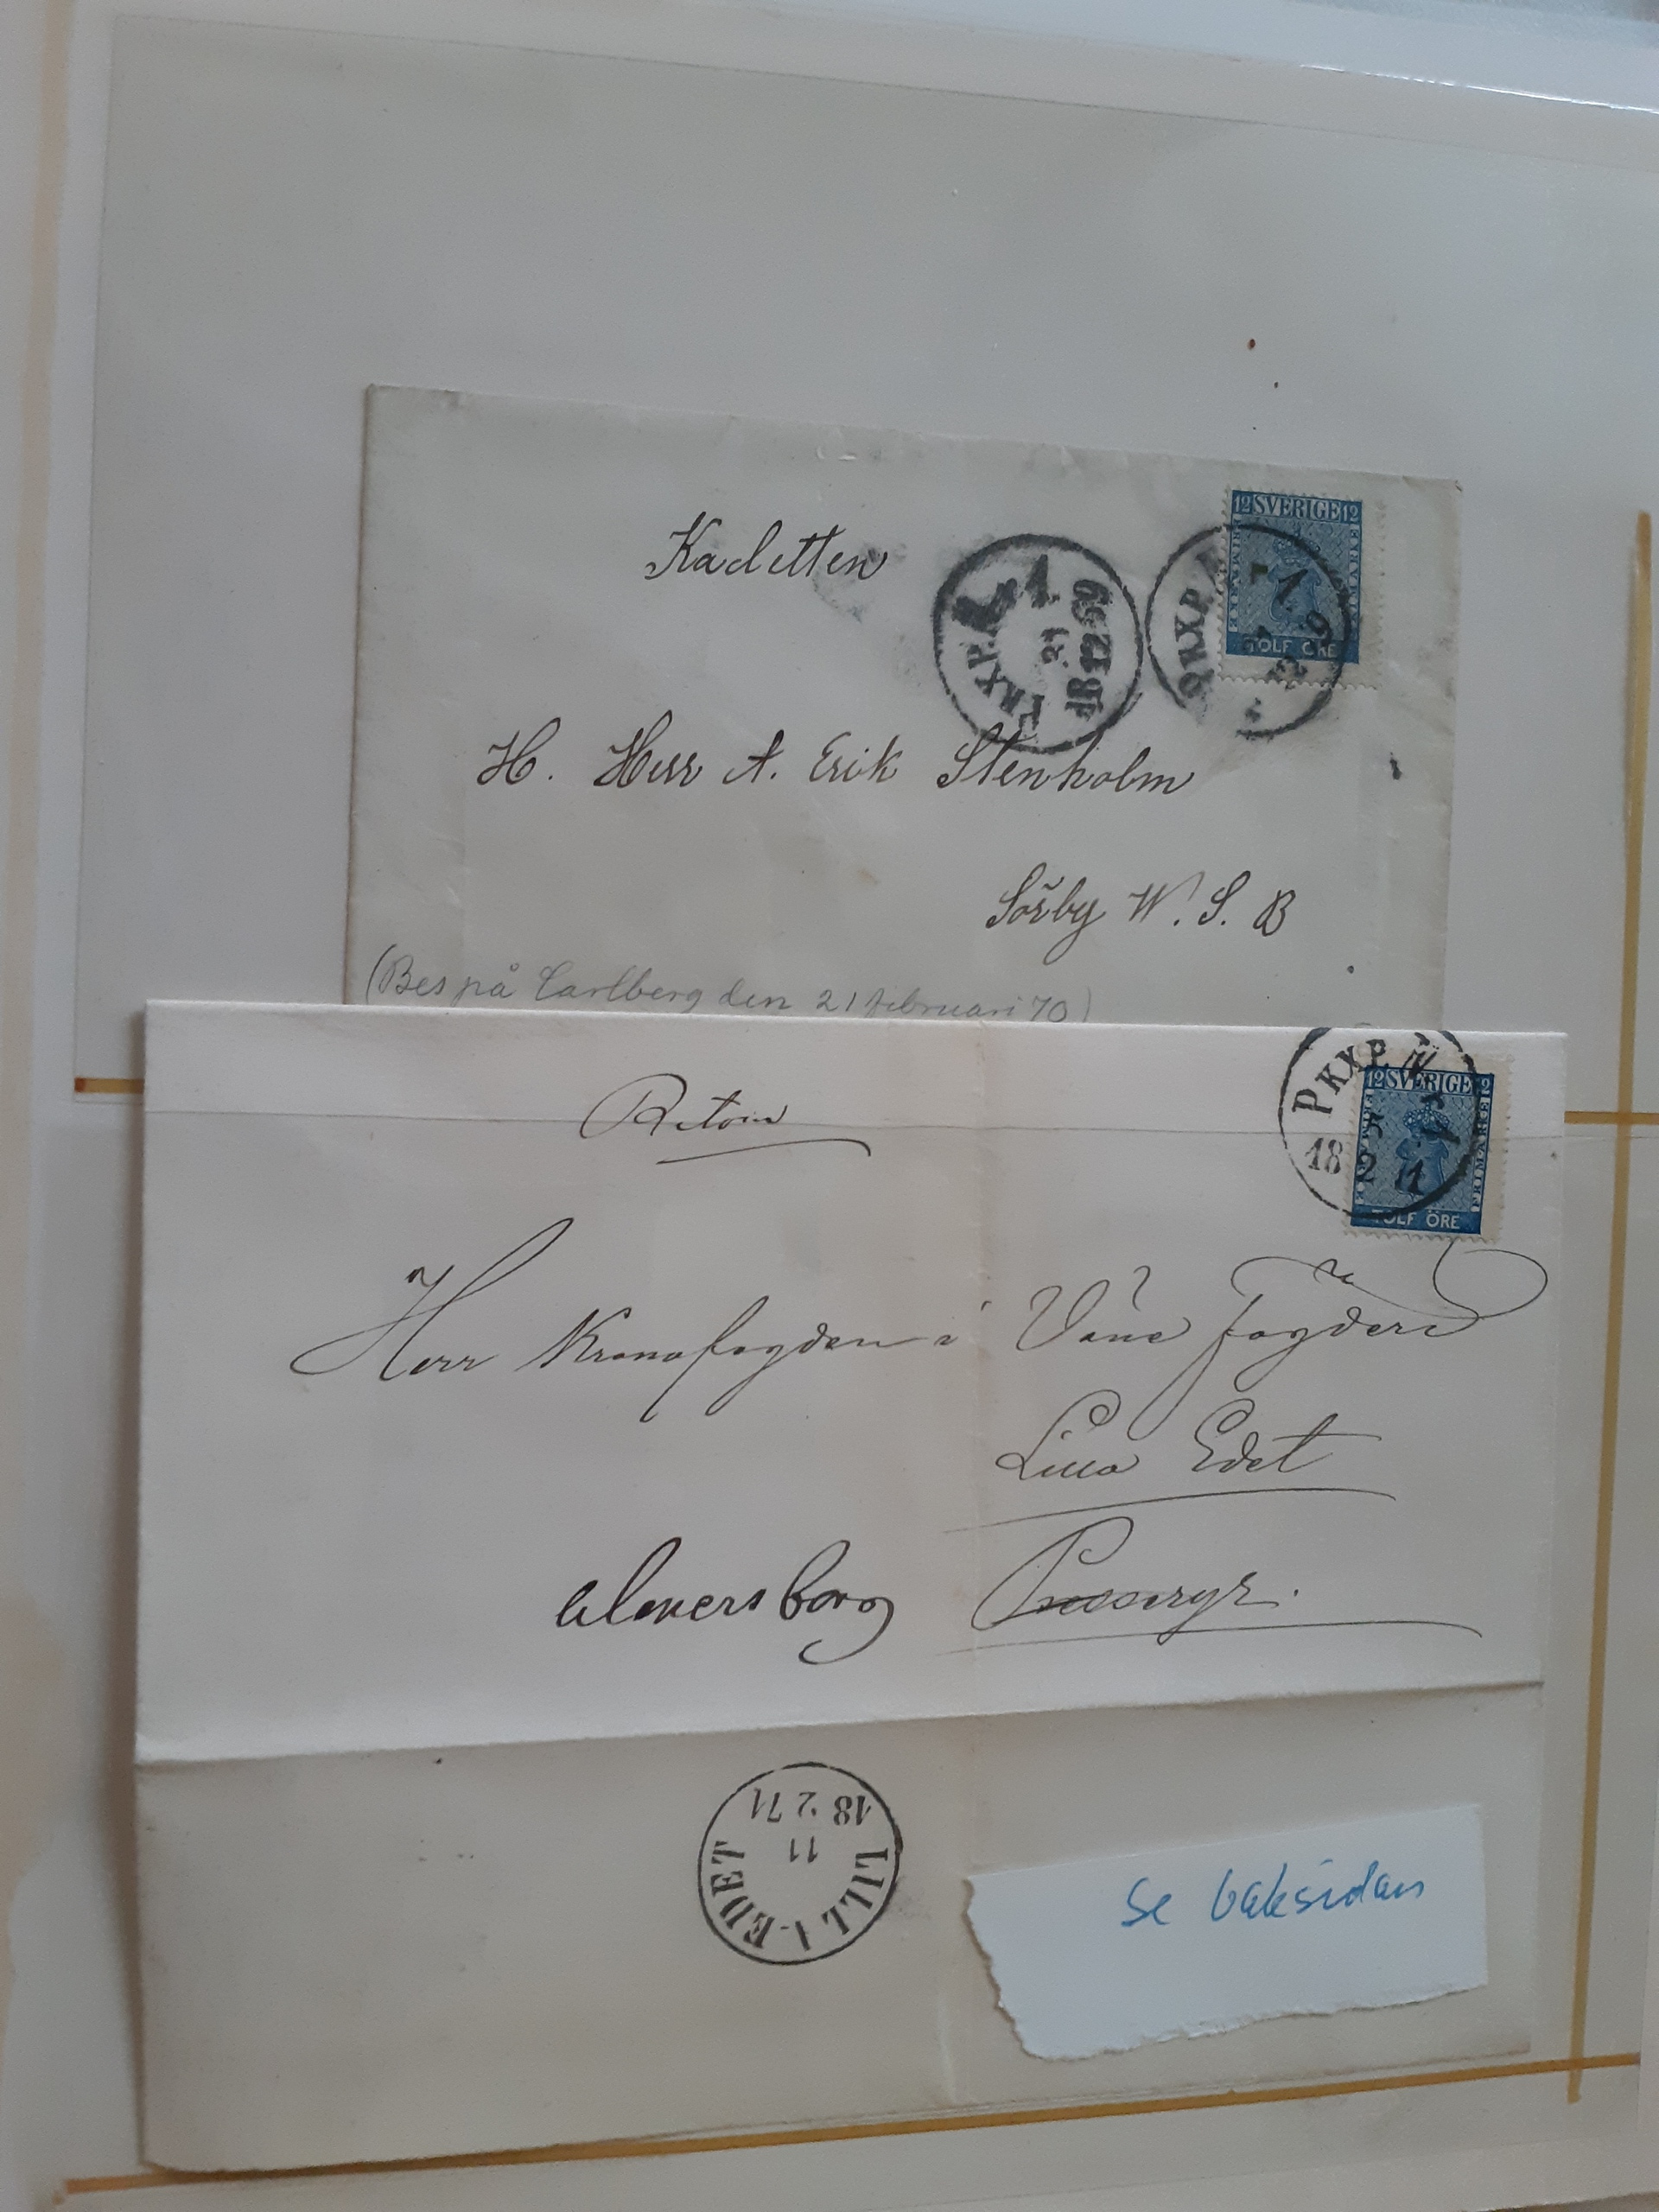 Kadetten
12 SVERIGE 12
FRIMÄRKE
TOLF ÖRE
PKXP.
1869
H. Herr A. Erik Stenholm
Sörby W. S. B
(Bes på Carlberg den 21 februari 70)
Retour
PKXP. N
18 2 71
12 SVERIGE 12
FRIMÄRKE
TOLF ÖRE
Herr Kronofogden i Väne Fögderi
Lilla Edet
Wenersborg
LILLA-EDET
11
18 2 71
Se baksidan